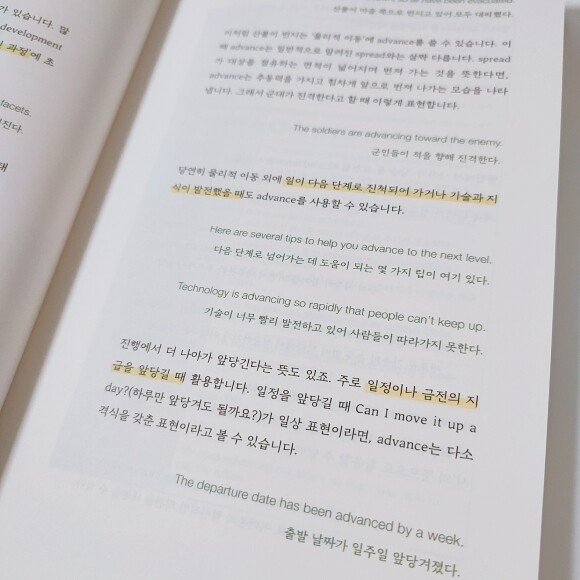 가 있습니다. 많
development
과정'에 초
facets.
진다.
태
산불이 마을 쪽으로 번지고 있어 모두 대피했다.
이처럼 산불이 번지는 '물리적 이동'에 advance를 쓸 수 있습니다. 이
때 advance는 일반적으로 알려진 spread와는 살짝 다릅니다. spread
가 대상을 점유하는 면적이 넓어지며 번져 가는 것을 뜻한다면,
advance는 추동력을 가지고 힘차게 앞으로 번져 나가는 모습을 나타
냅니다. 그래서 군대가 진격한다고 할 때 이렇게 표현합니다.
The soldiers are advancing toward the enemy.
군인들이 적을 향해 진격한다.
당연히 물리적 이동 외에 일이 다음 단계로 진척되어 가거나 기술과 지
식이 발전했을 때도 advance를 사용할 수 있습니다.
Here are several tips to help you advance to the next level.
다음 단계로 넘어가는 데 도움이 되는 몇 가지 팁이 여기 있다.
Technology is advancing so rapidly that people can't keep up.
기술이 너무 빨리 발전하고 있어 사람들이 따라가지 못한다.
진행에서 더 나아가 앞당긴다는 뜻도 있죠. 주로 일정이나 금전의 지
급을 앞당길 때 활용합니다. 일정을 앞당길 때 Can I move it up a
day?(하루만 앞당겨도 될까요?)가 일상 표현이라면, advance는 다소
격식을 갖춘 표현이라고 볼 수 있습니다.
The departure date has been advanced by a week.
출발 날짜가 일주일 앞당겨졌다.